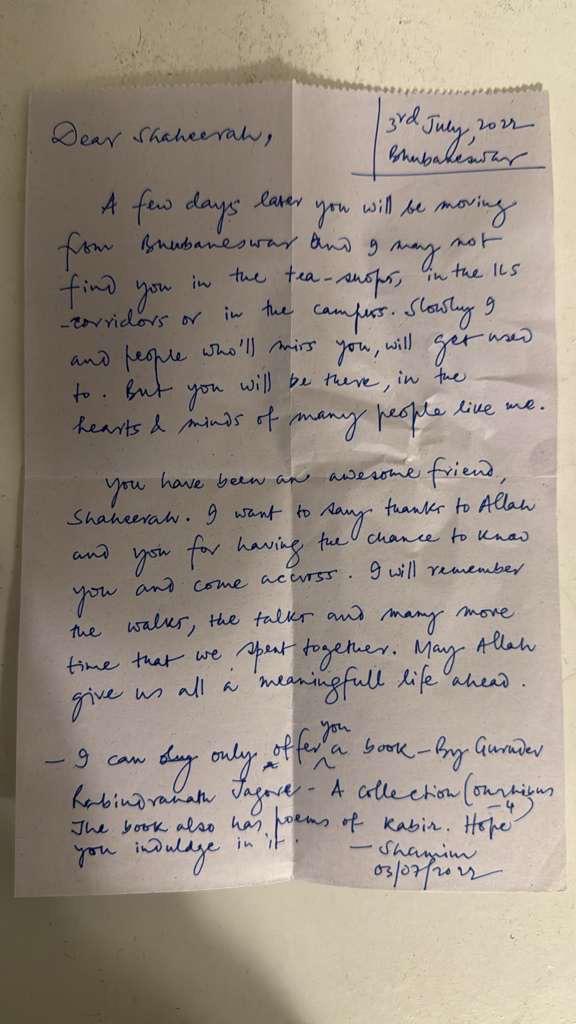 3rd July, 2022
Bhubaneswar
Dear Shaheerah,
A few days later you will be moving
from Bhubaneswar and I may not
find you in the tea-shops, in the ILS
corridors or in the campus. Slowly I
and people who'll miss you, will get used
to. But you will be there, in the
hearts & minds of many people like me.
You have been an awesome friend,
Shaheerah. I want to say thanks to Allah
and you for having the chance to know
you and come accross. I will remember
the walks, the talks and many more
time that we spent together. May Allah
give us all a meaningfull life ahead.
- I can only offer you a book - By Gurudev
Rabindranath Tagore - A collection (Omnibus
- 4)
The book also has poems of Kabir. Hope
you induldge in it.
- Shamim
03/07/2022